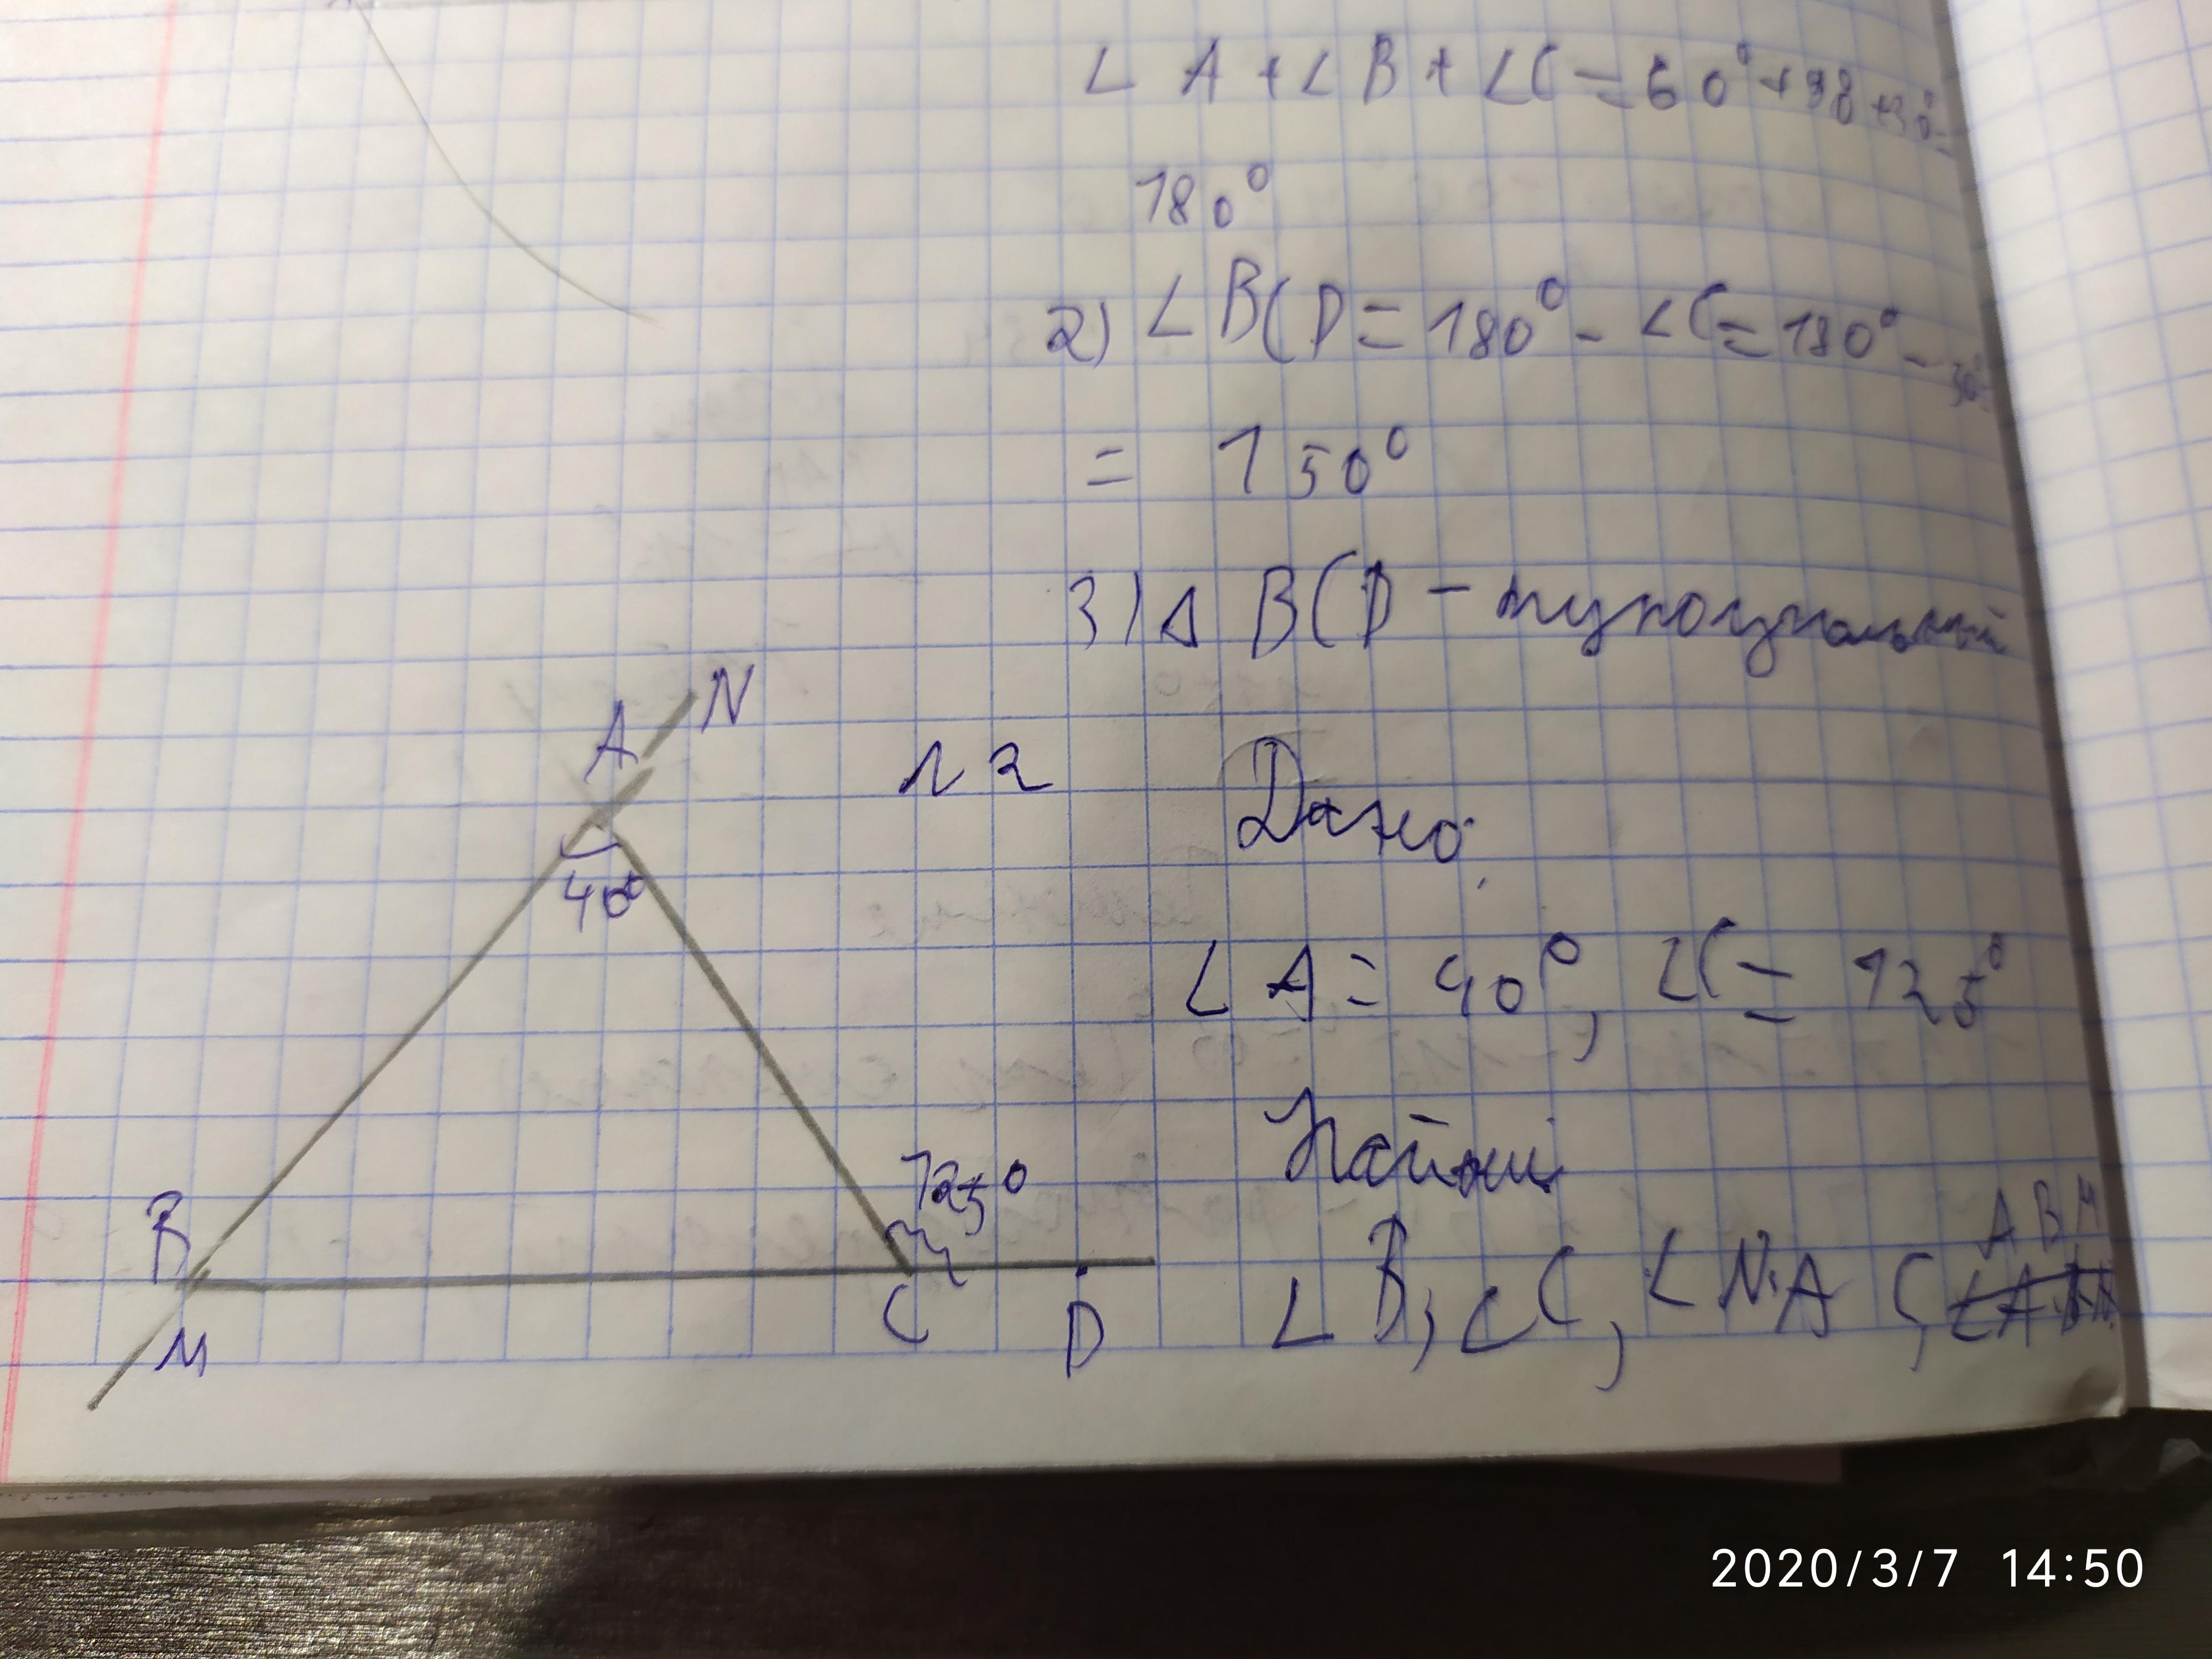 ∠ A + ∠ B + ∠C = 60° + 90 + 30° =
180°
2) ∠ BCD = 180° - ∠C = 180° - 30° =
= 150°
3) Δ BCD - тупоугольный
A N
40°
N 2 Дано:
∠ A = 40°, ∠C = 125°
Найти
∠ B, ∠ C, ∠ N A C, ABM
125°
B
M
C
D
2020/3/7 14:50